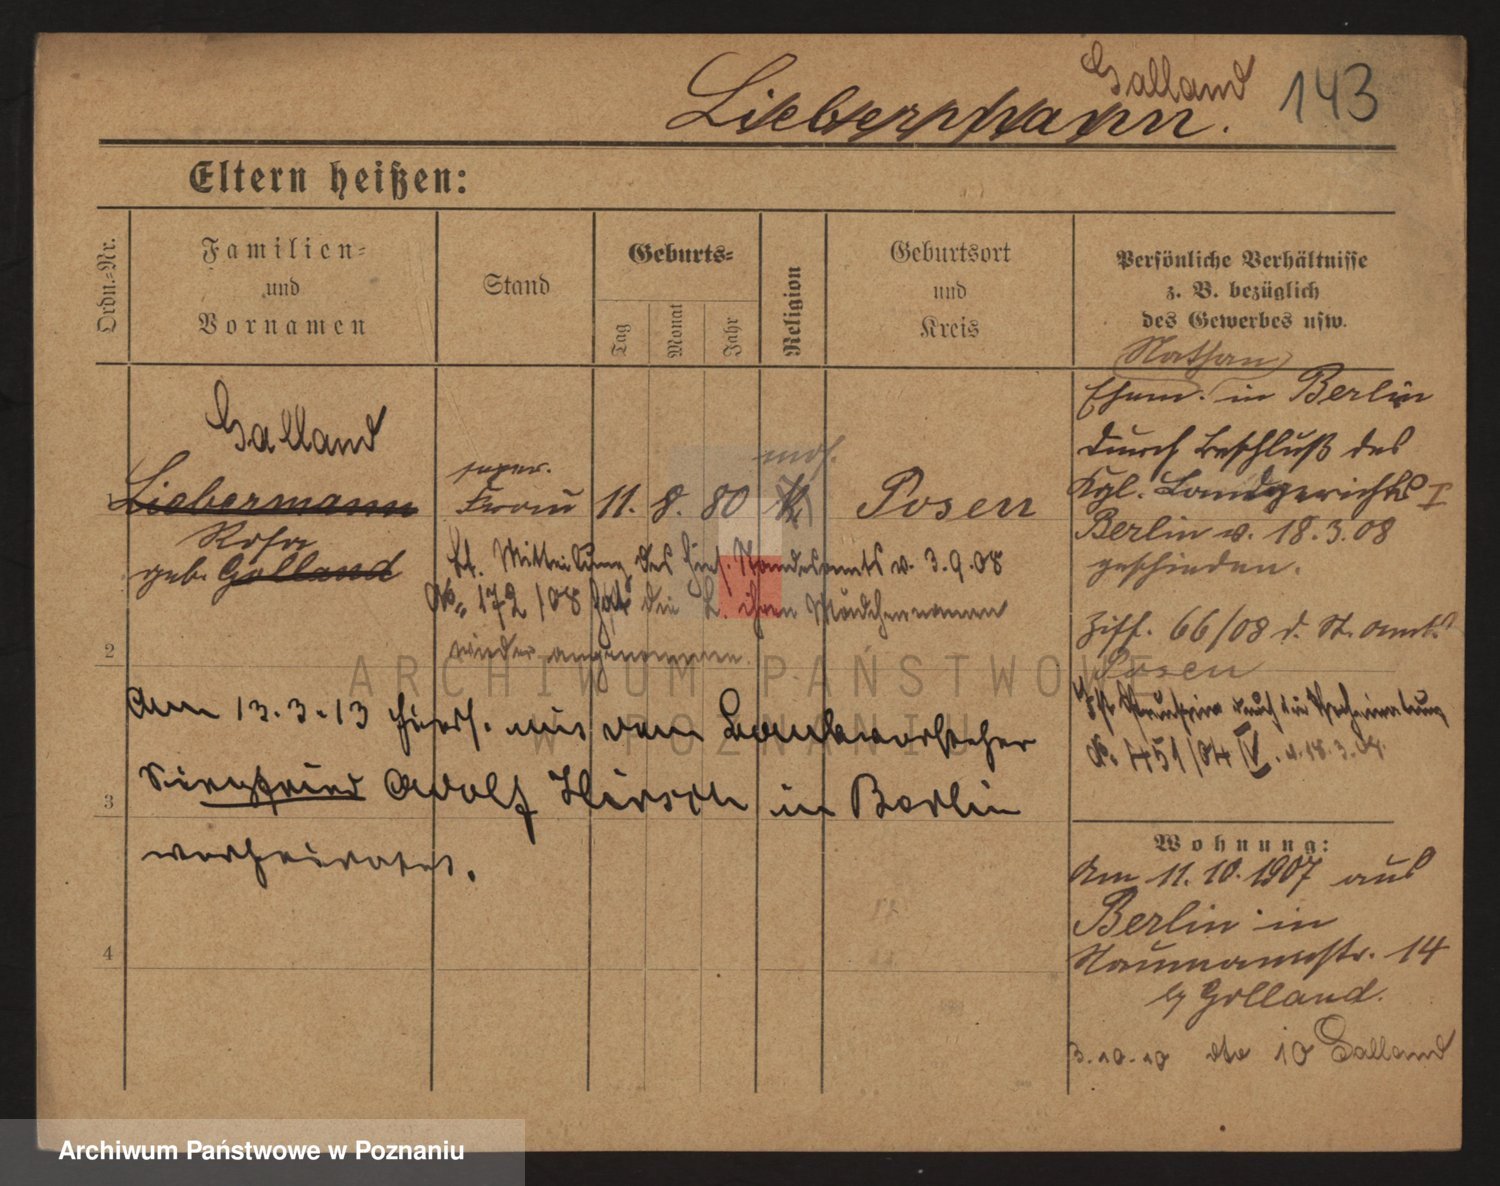 Galland 143
Liebermann.
Eltern heißen:
Ordn.=Nr.
Familien=
und
Vornamen
Stand
Geburts=
Tag
Monat
Jahr
Religion
Geburtsort
und
Kreis
Persönliche Verhältnisse
z. B. bezüglich
des Gewerbes usw.
Nathan
Ehem. in Berlin
durch Beschluß des
Kgl. Landgerichts I
Berlin v. 18.3.08
geschieden.
Ziff. 66/08 d. St. amts
Posen
No. 451/04 IV. v. 18.3.04.
Galland
1 Liebermann
Rosa
geb. Golland
Frau 11. 8. 80 mos. Posen
Lt. Mitteilung des hies. Standesamts v. 3.9.08
No. 172/08 hat die L. ihren Mädchennamen
wieder angenommen.
2
Am 13.3.13 hiers. mit dem Bankvorsteher
3 Siegfried Adolf Hirsch in Berlin
verheiratet.
4
Wohnung:
Am 11.10.1907 aus
Berlin in
Naumannstr. 14
b/ Golland.
3.10.10 dto 10 Galland
ARCHIWUM PAŃSTWOWE
W POZNANIU
Archiwum Państwowe w Poznaniu